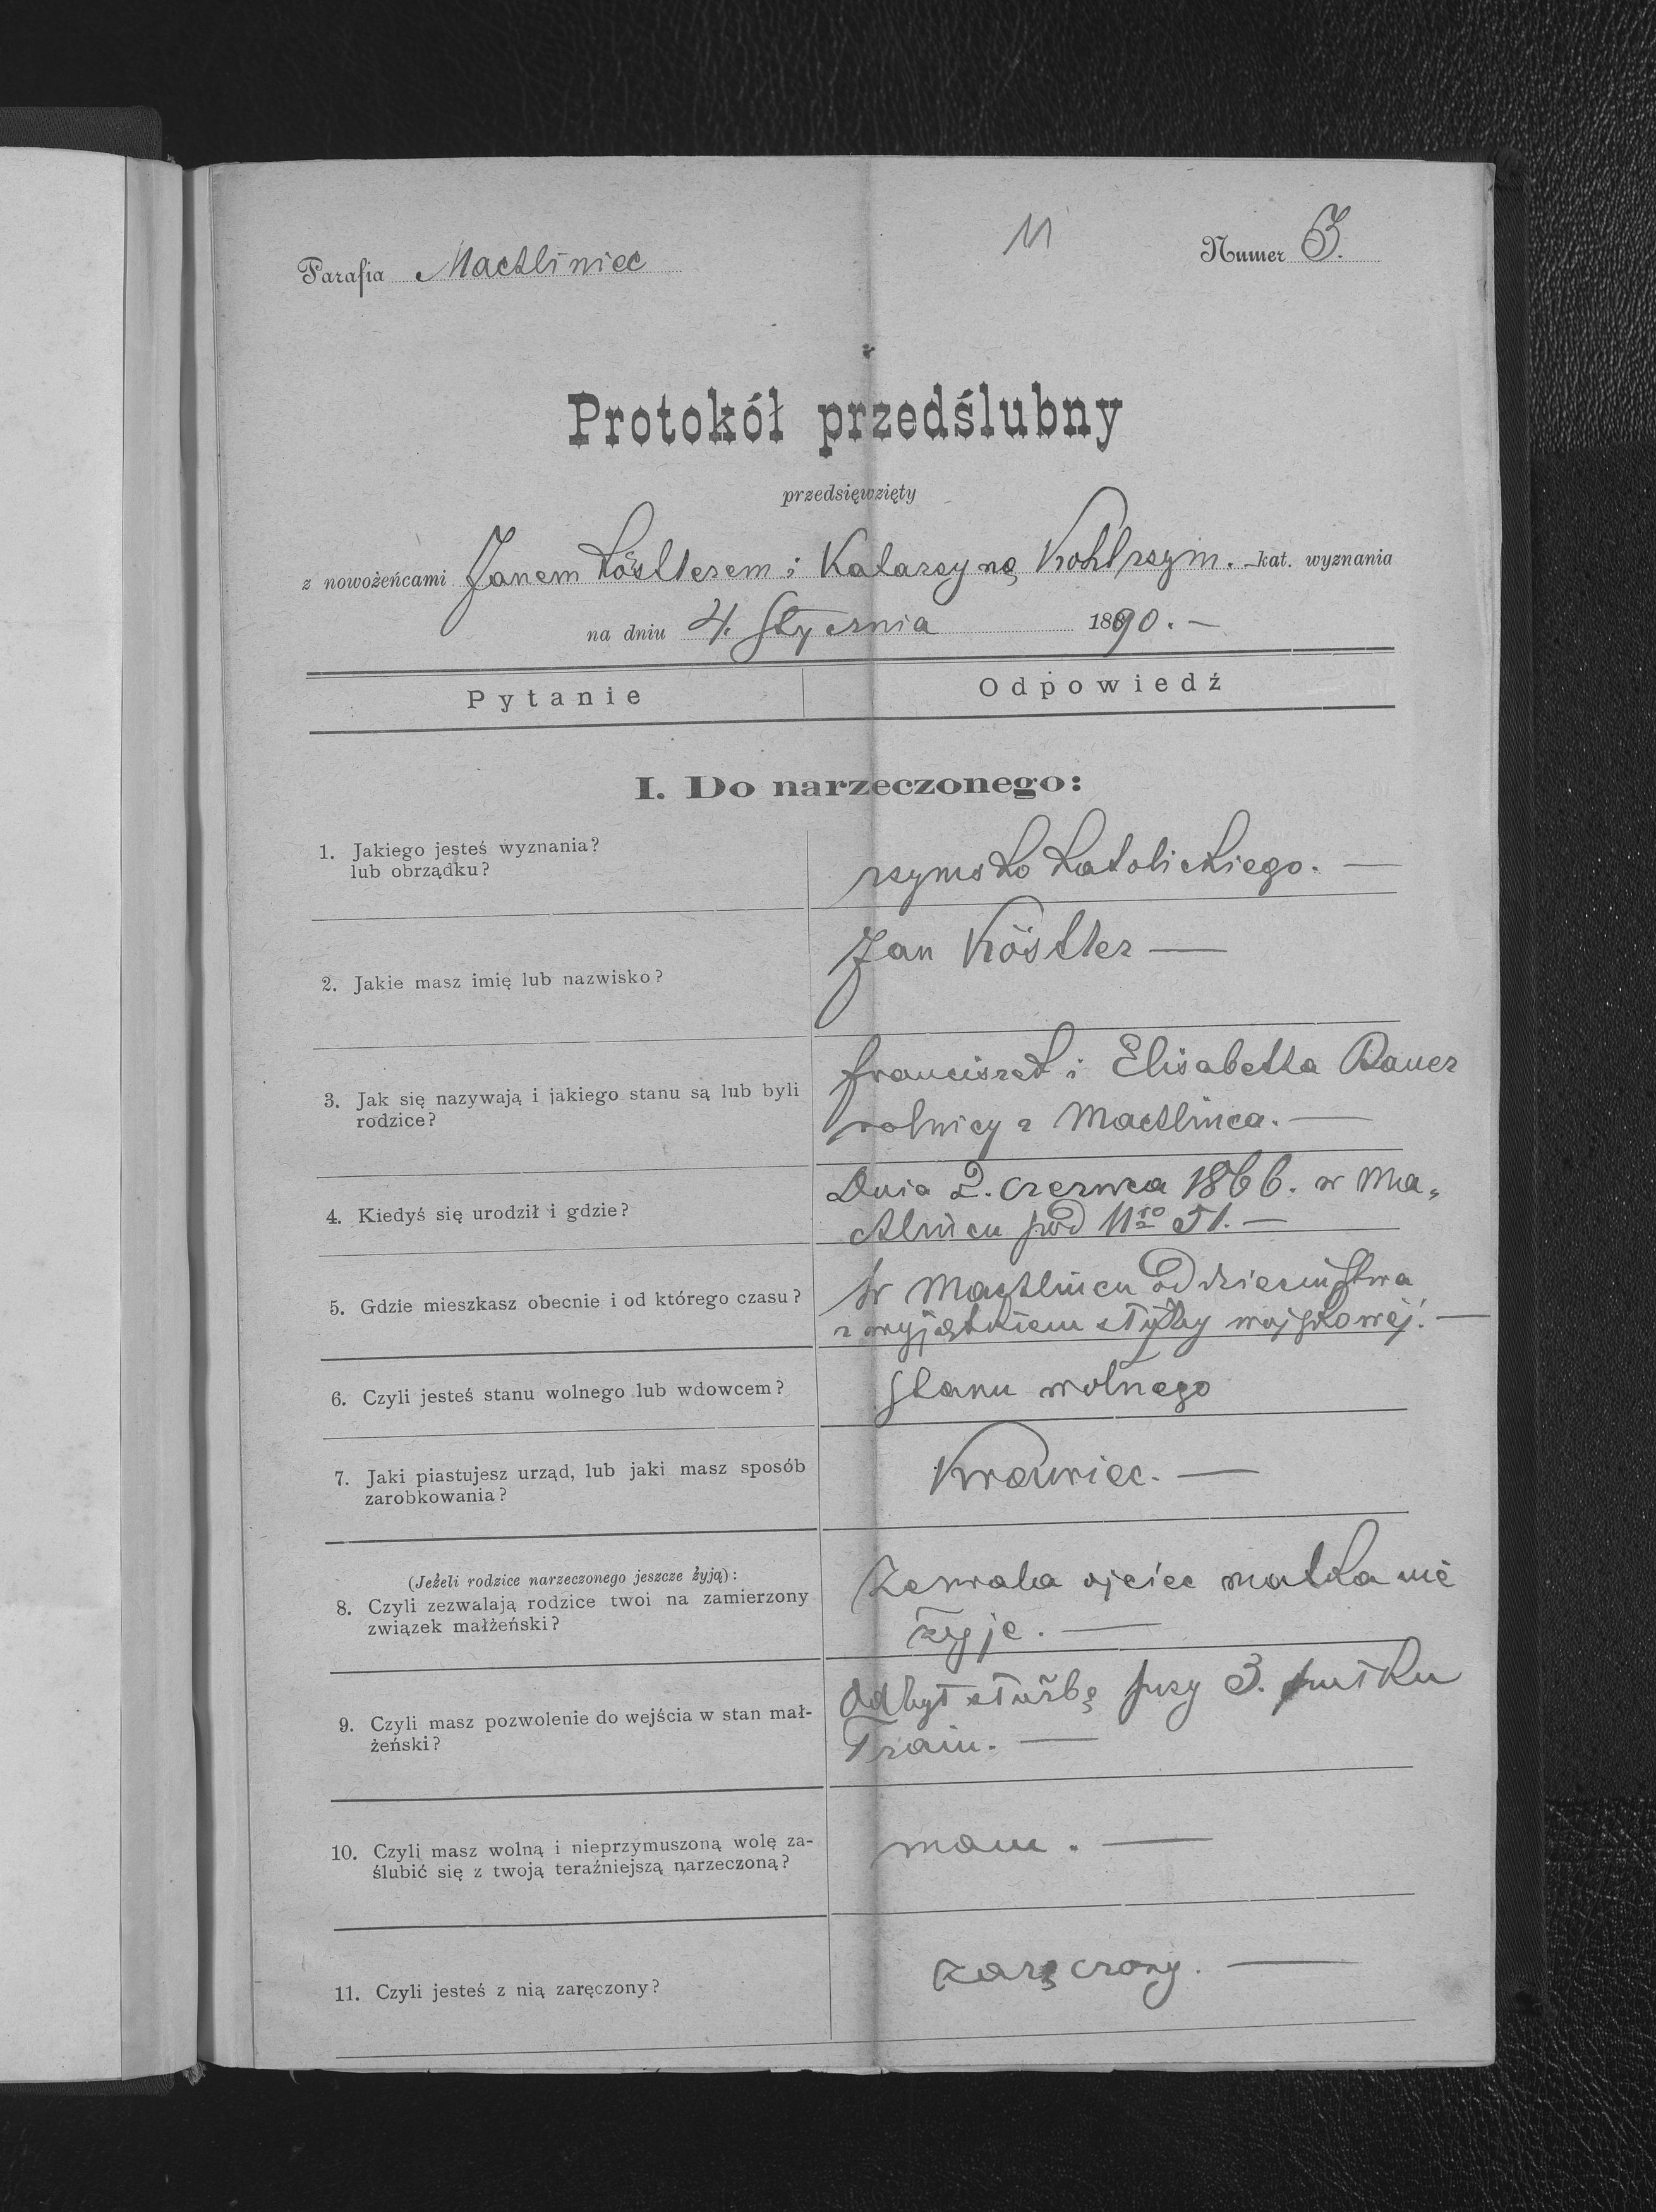 11
Parafia Machliniec
Numer 3.
Protokół przedślubny
przedsięwzięty
z nowożeńcami Janem Köstlerem i Katarzyną Kohl rzym. -kat. wyznania
na dniu 4. Stycznia 1890. —
Pytanie
Odpowiedź
I. Do narzeczonego:
1. Jakiego jesteś wyznania?
lub obrządku?
rzymsko katolickiego. —
2. Jakie masz imię lub nazwisko?
Jan Köstler —
3. Jak się nazywają i jakiego stanu są lub byli
rodzice?
Franciszek i Elisabetha Bauer
rolnicy z Machlińca. —
4. Kiedyś się urodził i gdzie?
Dnia 2. czerwca 1866. w Ma„
chlińcu pod Nro 51. —
5. Gdzie mieszkasz obecnie i od którego czasu?
W Machlińcu od dzieciństwa
z wyjątkiem służby wojskowéj. —
6. Czyli jesteś stanu wolnego lub wdowcem?
stanu wolnego
7. Jaki piastujesz urząd, lub jaki masz sposób
zarobkowania?
Krawiec. —
(Jeżeli rodzice narzeczonego jeszcze żyją):
8. Czyli zezwalają rodzice twoi na zamierzony
związek małżeński?
Zezwala ojciec matka nie
żyje. —
9. Czyli masz pozwolenie do wejścia w stan mał-
żeński?
Odbył służbę przy 3. pułku
Train. —
10. Czyli masz wolną i nieprzymuszoną wolę za-
ślubić się z twoją teraźniejszą narzeczoną?
mam. —
11. Czyli jesteś z nią zaręczony?
zaręczony. —